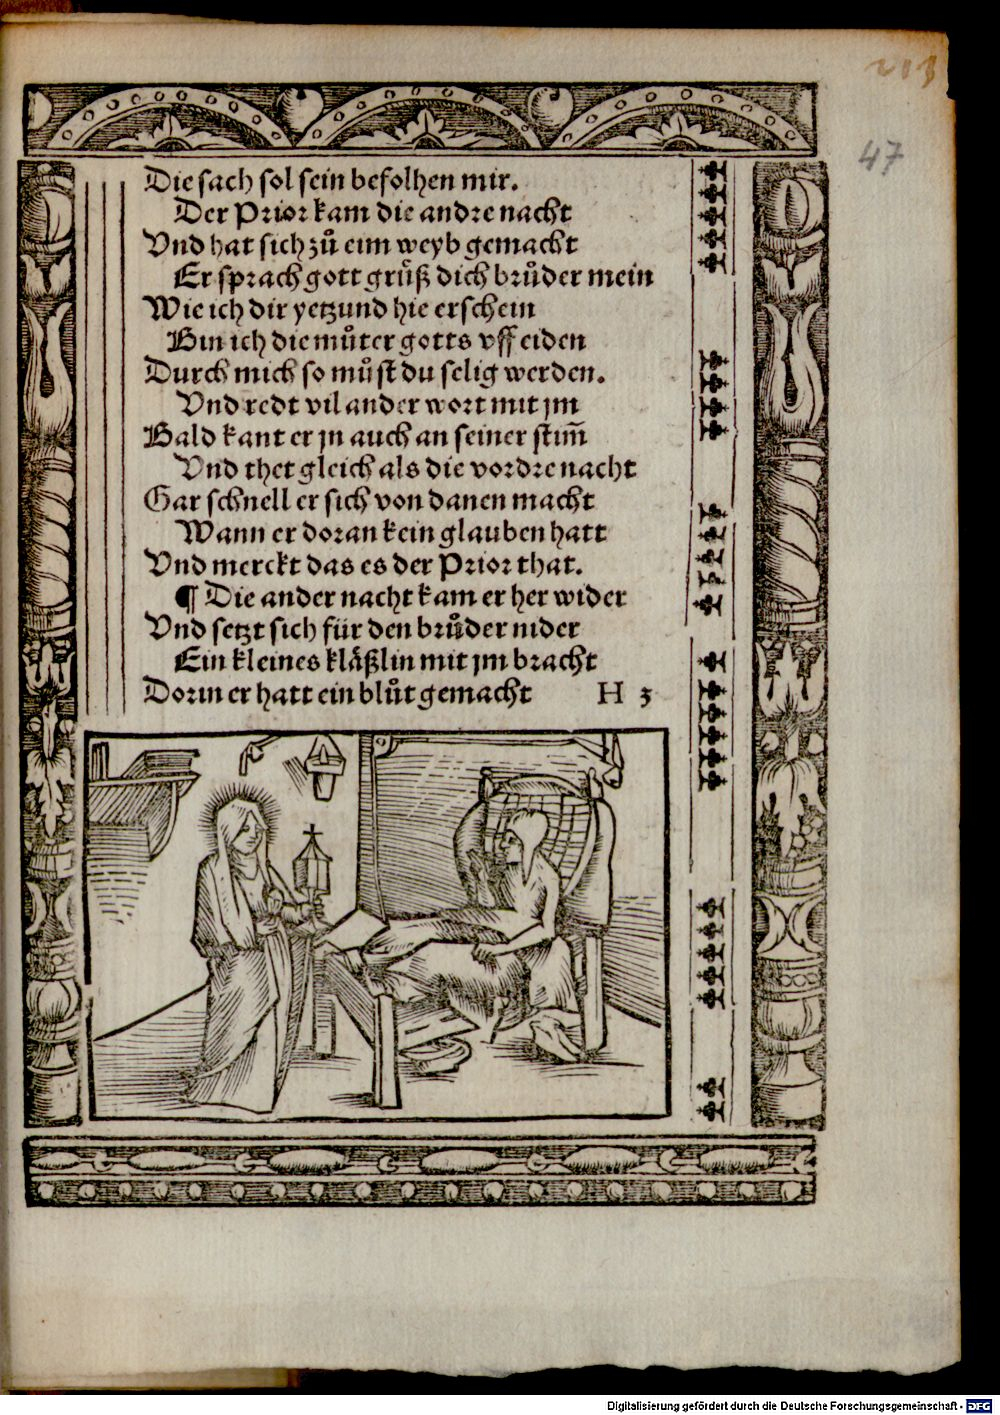 47
Die sach sol sein befolhen mir.
Der Prior kam die andre nacht
Vnd hat sich zuͦ eim weyb gemacht
Er sprach gott gruͤß dich bruͦder mein
Wie ich dir yetzund hie erschein
Bin ich die muͦter gotts vff eiden
Durch mich so muͦst du selig werden.
Vnd redt vil ander wort mit jm
Bald kant er jn auch an seiner stim̄
Vnd thet gleich als die vordre nacht
Gar schnell er sich von danen macht
Wann er doran kein glauben hatt
Vnd merckt das es der Prior that.
¶ Die ander nacht kam er her wider
Vnd setzt sich für den bruͦder nider
Ein kleines kläßlin mit jm bracht
Dorin er hatt ein bluͦt gemacht H 3
Digitalisierung gefördert durch die Deutsche Forschungsgemeinschaft - DFG